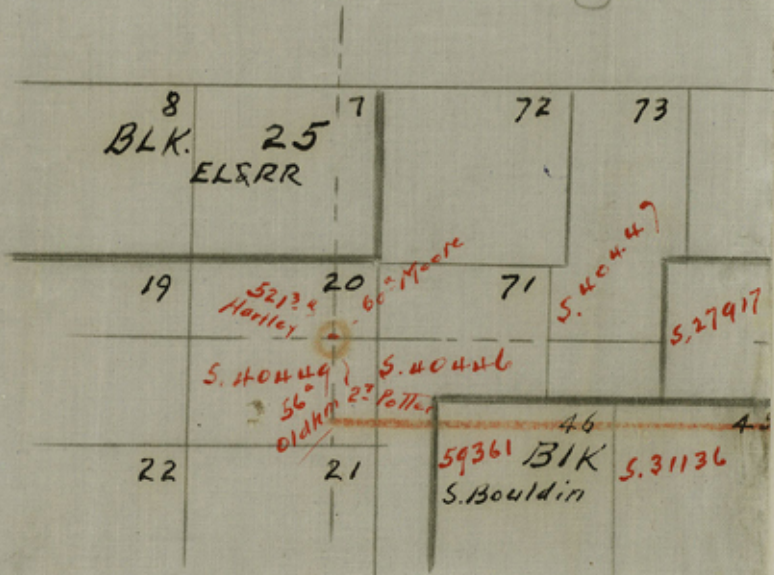 8
7
72
73
BLK. 25
EL&RR
19
20
71
S. 40447
521
Hartley
60ª Moore
S. 27917
S. 40449
S. 40446
56ª
Oldhm
2
Potter
46
59361
BlK
S. 31136
S. Bouldin
22
21